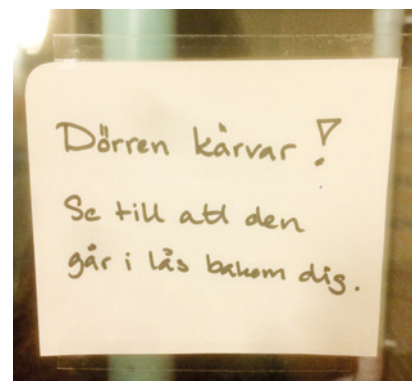 Dörren kärvar!
Se till att den
går i lås bakom dig.